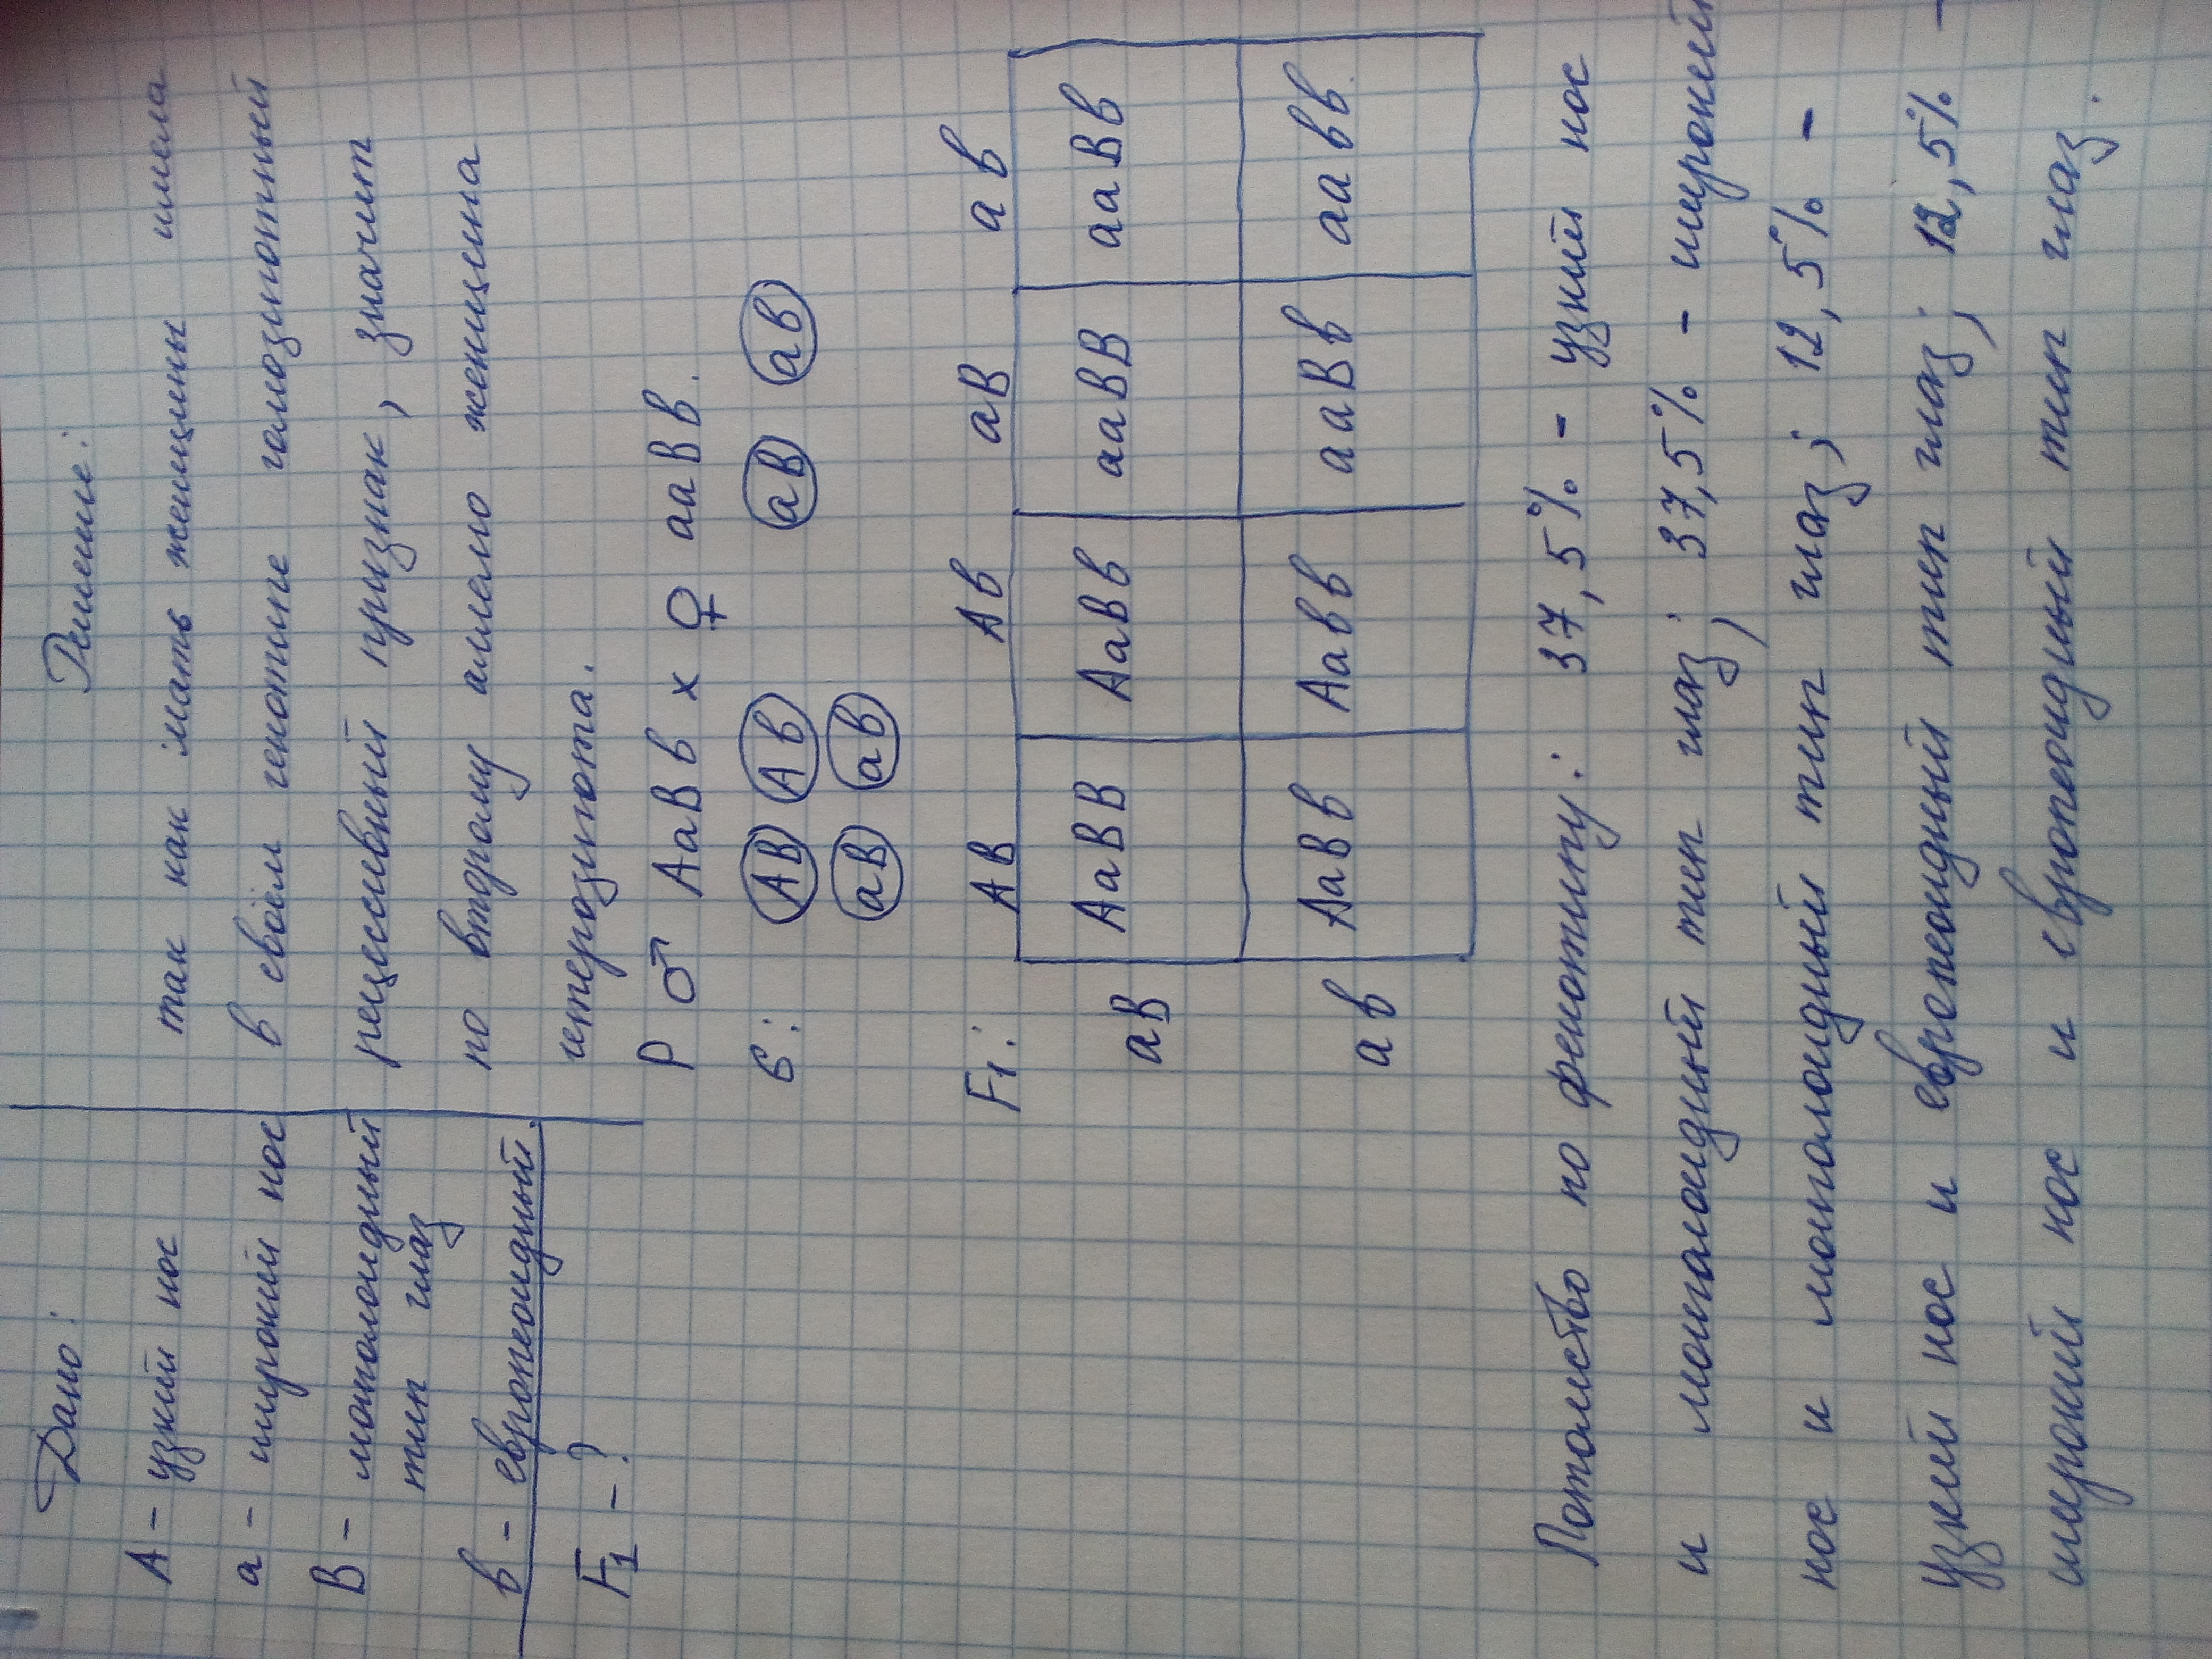 Дано:
А - узкий нос
а - широкий нос
В - монголоидный
тип глаз
в - европеоидный.
F1 - ?
Решение:
так как мать женщины имела
в своём генотипе гомозиготный
рецессивный признак, значит
по второму аллелю женщина
гетерозигота.
Р ♂ АаВв х ♀ ааВв.
G: АВ Ав аВ ав
аВ ав
F1: АВ Ав аВ ав
аВ АаВВ АаВв ааВВ ааВв
ав АаВв Аавв ааВв аавв
Потомство по фенотипу: 37,5% - узкий нос
и монголоидный тип глаз; 37,5% - широкий
нос и монголоидный тип глаз; 12,5% -
узкий нос и европеоидный тип глаз; 12,5% -
широкий нос и европеоидный тип глаз.